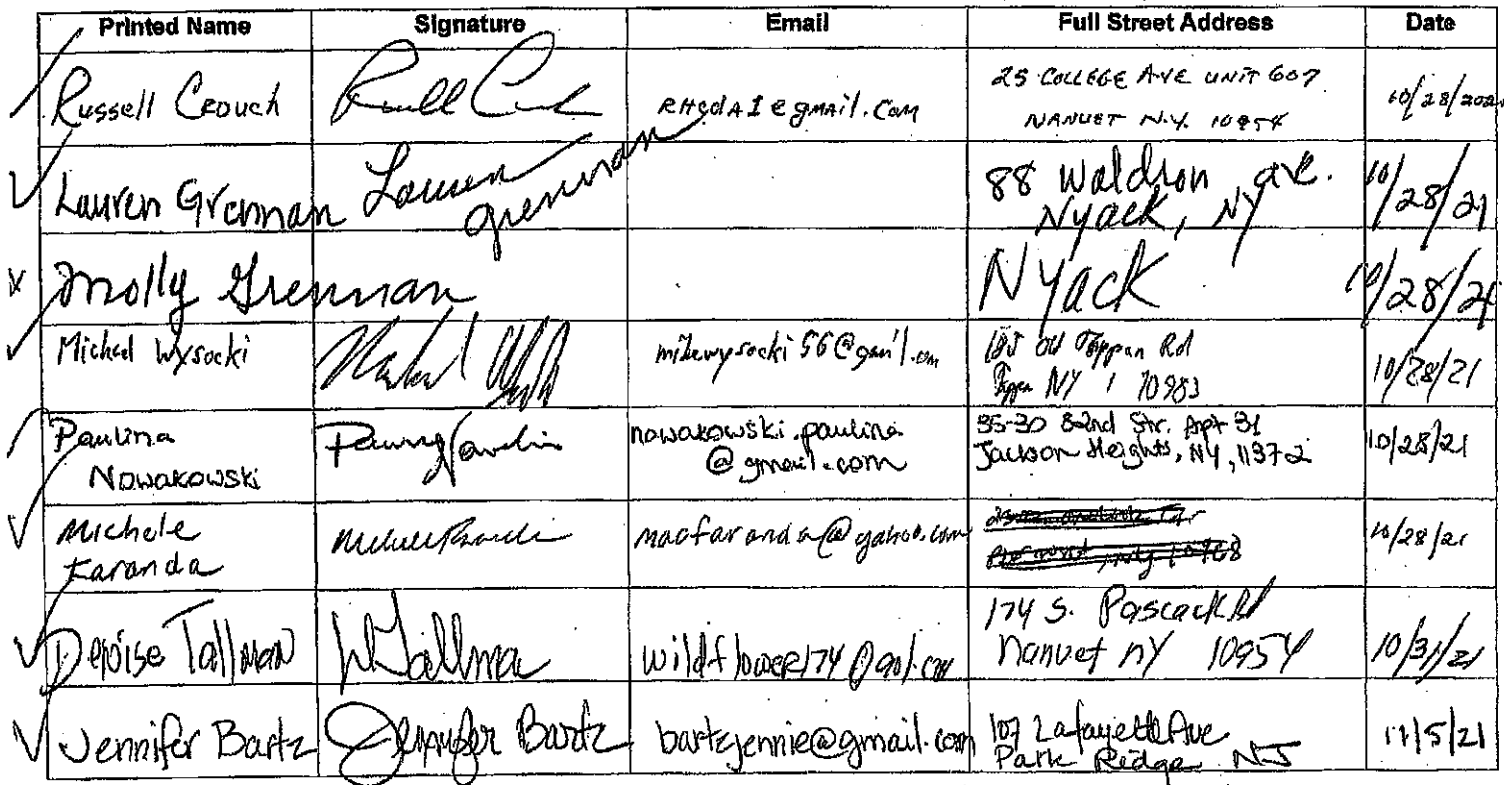 Printed Name Signature Email Full Street Address Date
Russell Crouch 25 COLLEGE AVE UNIT 607
NANUET N.Y. 10954
Lauren Grennan Lauren Grennan 88 Waldron ave.
Nyack, NY 10/28/21
Molly Grennan Nyack 10/28/21
Michael Wysocki mikewysocki56@gmail.com 185 Old Tappan Rd
Tappan NY 10983 10/28/21
Paulina
Nowakowski nowakowski.paulina
@gmail.com 35-30 82nd Str. Apt 31
Jackson Heights, NY, 11372 10/28/21
Michele
Faranda macfaranda@yahoo.com 10/28/21
Denise Tallman DTallma wildflower174@aol.com 174 S. Pascack Rd
Nanuet NY 10954 10/31/21
Jennifer Bartz Jennifer Bartz bartzjennie@gmail.com 107 Lafayette Ave
Park Ridge NJ 11/5/21